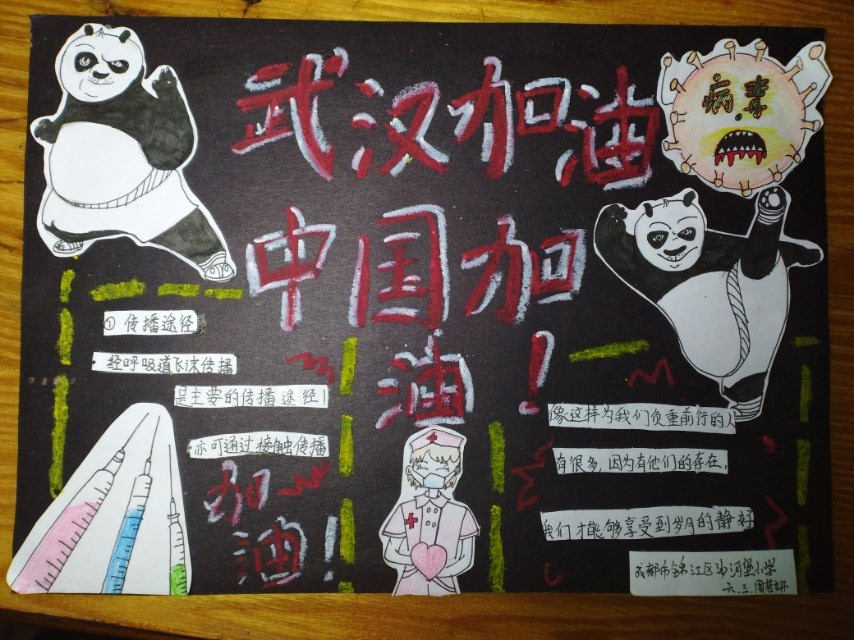 武汉加油
病毒
中国加
油!
① 传播途径
经呼吸道飞沫传播
是主要的传播途径!
亦可通过接触传播
加
油!
像这样为我们负重前行的人
有很多,因为有他们的存在,
我们才能够享受到岁月的静好
成都市锦江区沙河堡小学
六.三.周